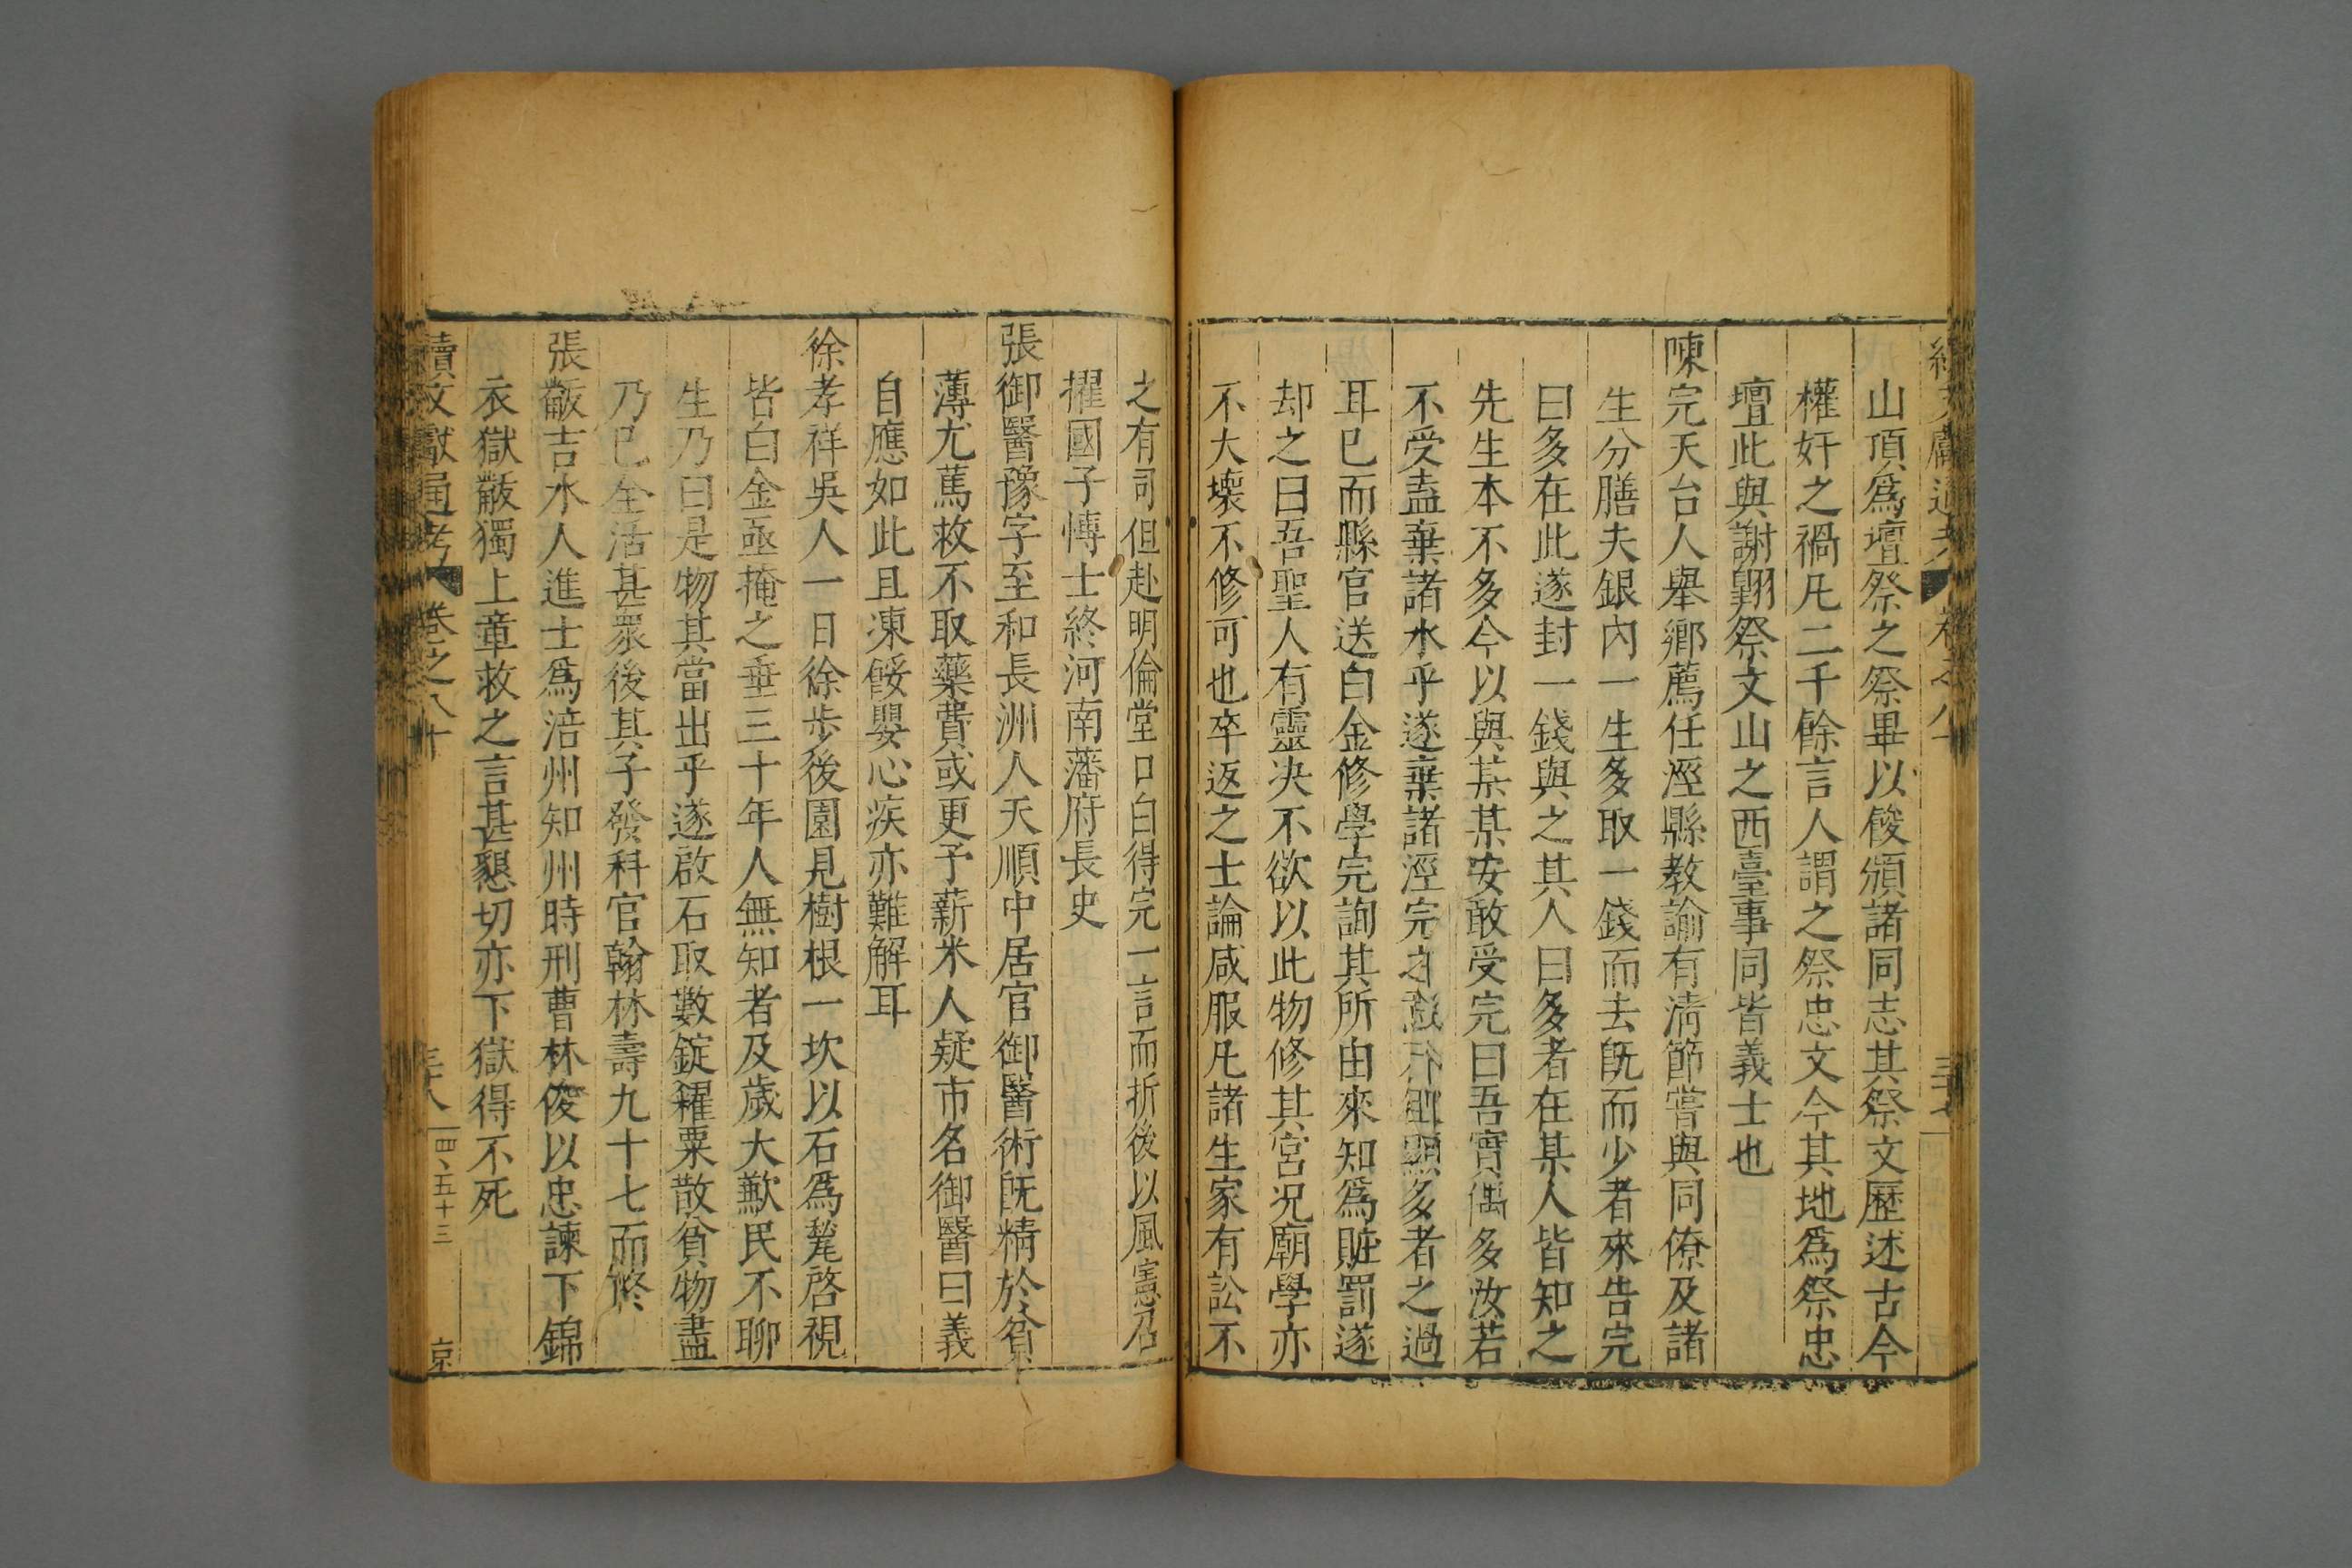 山頂爲壇祭之祭畢以餕頒諸同志其祭文歷述古今
權奸之禍凡二千餘言人謂之祭忠文今其地爲祭忠
壇此與謝翺祭文山之西臺事同皆義士也
陳完天台人舉鄉薦任涇縣教諭有清節嘗與同僚及諸
生分膳夫銀內一生多取一錢而去旣而少者來告完
曰多在此遂封一錢與之其人曰多者在某人皆知之
先生本不多今以與某某安敢受完曰吾實偶多汝若
不受盍棄諸水乎遂棄諸涇完之 多者之過
耳已而縣官送白金修學完詢其所由來知爲賍罰遂
却之曰吾聖人有靈决不欲以此物修其宮况廟學亦
不大壞不修可也卒返之士論咸服凡諸生家有訟不
之有司但赴明倫堂口白得完一言而折後以風憲召
擢國子博士終河南藩府長史
張御醫豫字至和長洲人天順中居官御醫術旣精於貧
薄尤篤救不取藥費或更予薪米人疑市名御醫曰義
自應如此且凍餒嬰心疾亦難解耳
徐孝祥吳人一日徐步後園見樹根一坎以石爲甃啓視
皆白金亟掩之垂三十年人無知者及歲大歉民不聊
生乃曰是物其當出乎遂啟石取數錠糴粟散貧物盡
乃已全活甚衆後其子發科官翰林壽九十七而終
張黻吉水人進士爲涪州知州時刑曹林俊以忠諫下錦
衣獄黻獨上章救之言甚懇切亦下獄得不死
續文獻通考 卷之八十 三十八 四、五十三 京